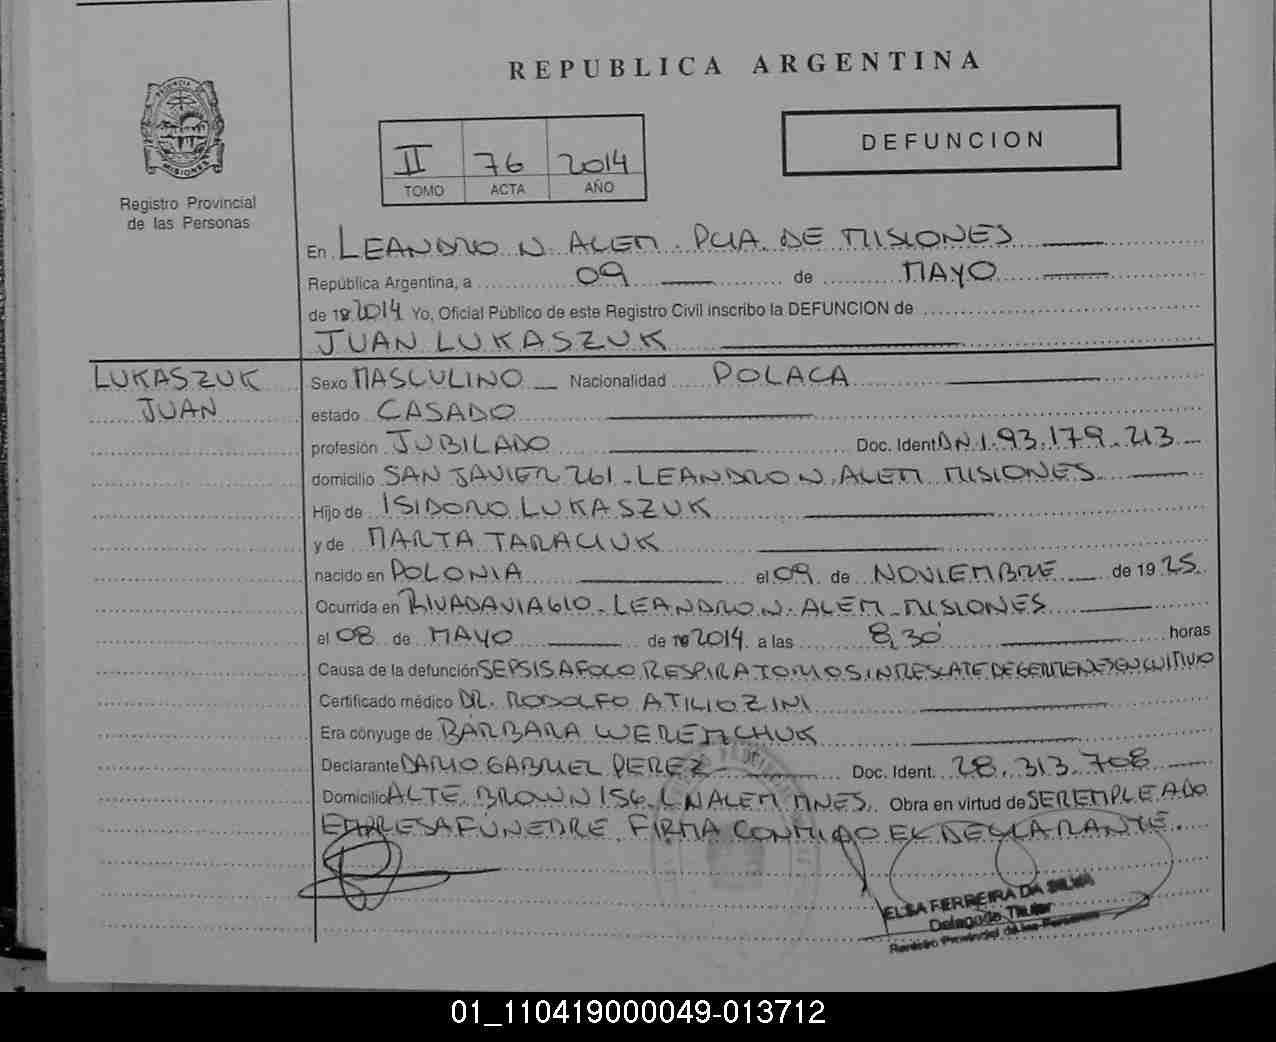 REPUBLICA ARGENTINA
PROVINCIA DE
MISIONES
Registro Provincial
de las Personas
II 76 2014
TOMO ACTA AÑO
DEFUNCION
En LEANDRO N. ALEM. PCIA. DE MISIONES
República Argentina, a 09 de MAYO
de 19 2014 Yo, Oficial Público de este Registro Civil inscribo la DEFUNCION de
JUAN LUKASZUK
LUKASZUK
JUAN
Sexo MASCULINO Nacionalidad POLACA
estado CASADO
profesión JUBILADO Doc. Ident. D.N.I. 93.179.213
domicilio SAN JAVIER 261 - LEANDRO N. ALEM MISIONES
Hijo de ISIDORO LUKASZUK
y de MARTA TARACIUK
nacido en POLONIA el 09 de NOVIEMBRE de 19 25
Ocurrida en RIVADAVIA 610 - LEANDRO N. ALEM - MISIONES
el 08 de MAYO de 19 2014 a las 8,30 horas
Causa de la defunción SEPSIS A FOCO RESPIRATORIO SIN RESCATE DE GERMENES EN CULTIVO
Certificado médico DR. RODOLFO ATILIO ZINI
Era cónyuge de BÁRBARA WEREMCHUK
Declarante DARIO GABRIEL PEREZ Doc. Ident. 28.313.708
Domicilio ALTE. BROWN 156 L N ALEM MNES. Obra en virtud de SER EMPLEADO
EMPRESA FÚNEBRE FIRMA CONMIGO EL DECLARANTE.
ELSA FERREIRA DA SILVA
Delegado Titular
Registro Provincial de las Personas
01_110419000049-013712